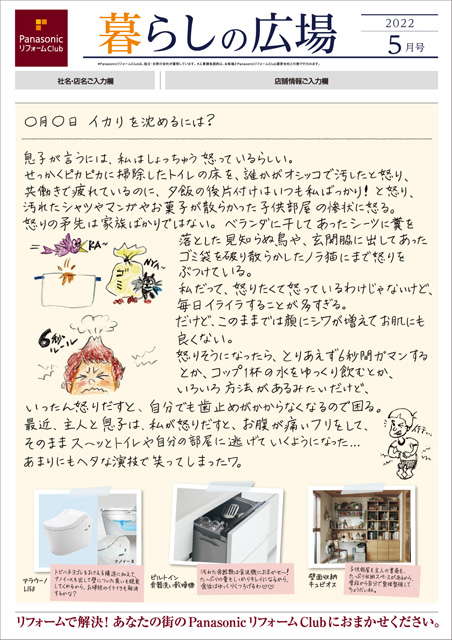 Panasonic
リフォームClub
暮らしの広場
2022
5月号
社名・店名ご入力欄
店舗情報ご入力欄
〇月〇日 イカリを沈めるには?
息子が言うには、私はしょっちゅう怒っているらしい。
せっかくピカピカに掃除したトイレの床を、誰かがオシッコで汚したと怒り、
共働きで疲れているのに、夕飯の後片付けはいつも私ばっかり!と怒り、
汚れたシャツやマンガやお菓子が散らかった子供部屋の惨状に怒る。
怒りの矛先は家族ばかりではない。ベランダに干してあったシーツに糞を
落とした見知らぬ鳥や、玄関脇に出してあった
ゴミ袋を破り散らかしたノラ猫にまで怒りを
ぶつけている。
私だって、怒りたくて怒っているわけじゃないけど、
毎日イライラすることが多すぎる。
だけど、このままでは顔にシワが増えてお肌にも
良くない。
怒りそうになったら、とりあえず6秒間ガマンする
とか、コップ1杯の水をゆっくり飲むとか、
いろいろ方法があるみたいだけど、
いったん怒りだすと、自分でも歯止めがかからなくなるので困る。
最近、主人と息子は、私が怒りだすと、お腹が痛いフリをして、
そのままス〜ッとトイレや自分の部屋に逃げていくようになった…
あまりにもヘタな演技で笑ってしまったワ。
KA~
NYA~
ゴミ
6秒ルール
イテテ…
ナノイース
アラウーノ
L150
トビハネヨゴレをおさえる構造に加えて、
ナノイースを出して壁についた臭いを脱臭
してくれるから、お掃除のイライラも解消
するかな?
ビルトイン
食器洗い乾燥機
汚れた食器類は食洗機におまかせ〜!
たっぷりの量もしっかりキレイになるから、
食後はゆっくりくつろげるわ♡
壁面収納
キュビオス
子供部屋も主人の書斎も、
たっぷり収納スペースがあるから、
普段から自分で整理整頓して
ちょうだいね。
リフォームで解決! あなたの街のPanasonicリフォームClubにおまかせください。